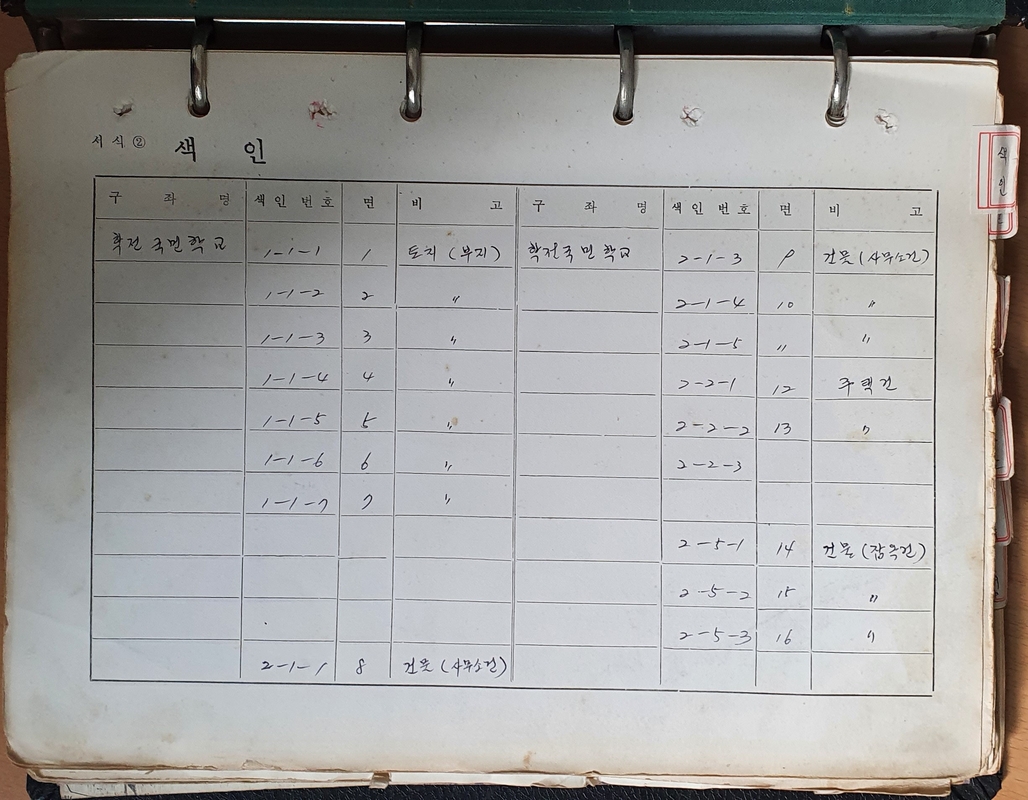 서식② 색 인
구 좌 명 색인 번호 면 비 고 구 좌 명 색인 번호 면 비 고
학전 국민학교 1-1-1 1 토지 (부지) 학전국민학교 2-1-3 9 건물 (사무소건)
1-1-2 2 〃 2-1-4 10 〃
1-1-3 3 〃 2-1-5 11 〃
1-1-4 4 〃 2-2-1 12 주택건
1-1-5 5 〃 2-2-2 13 〃
1-1-6 6 〃 2-2-3
1-1-7 7 〃
2-5-1 14 건물 (잡옥건)
2-5-2 15 〃
2-5-3 16 〃
2-1-1 8 건물 (사무소건)
색인